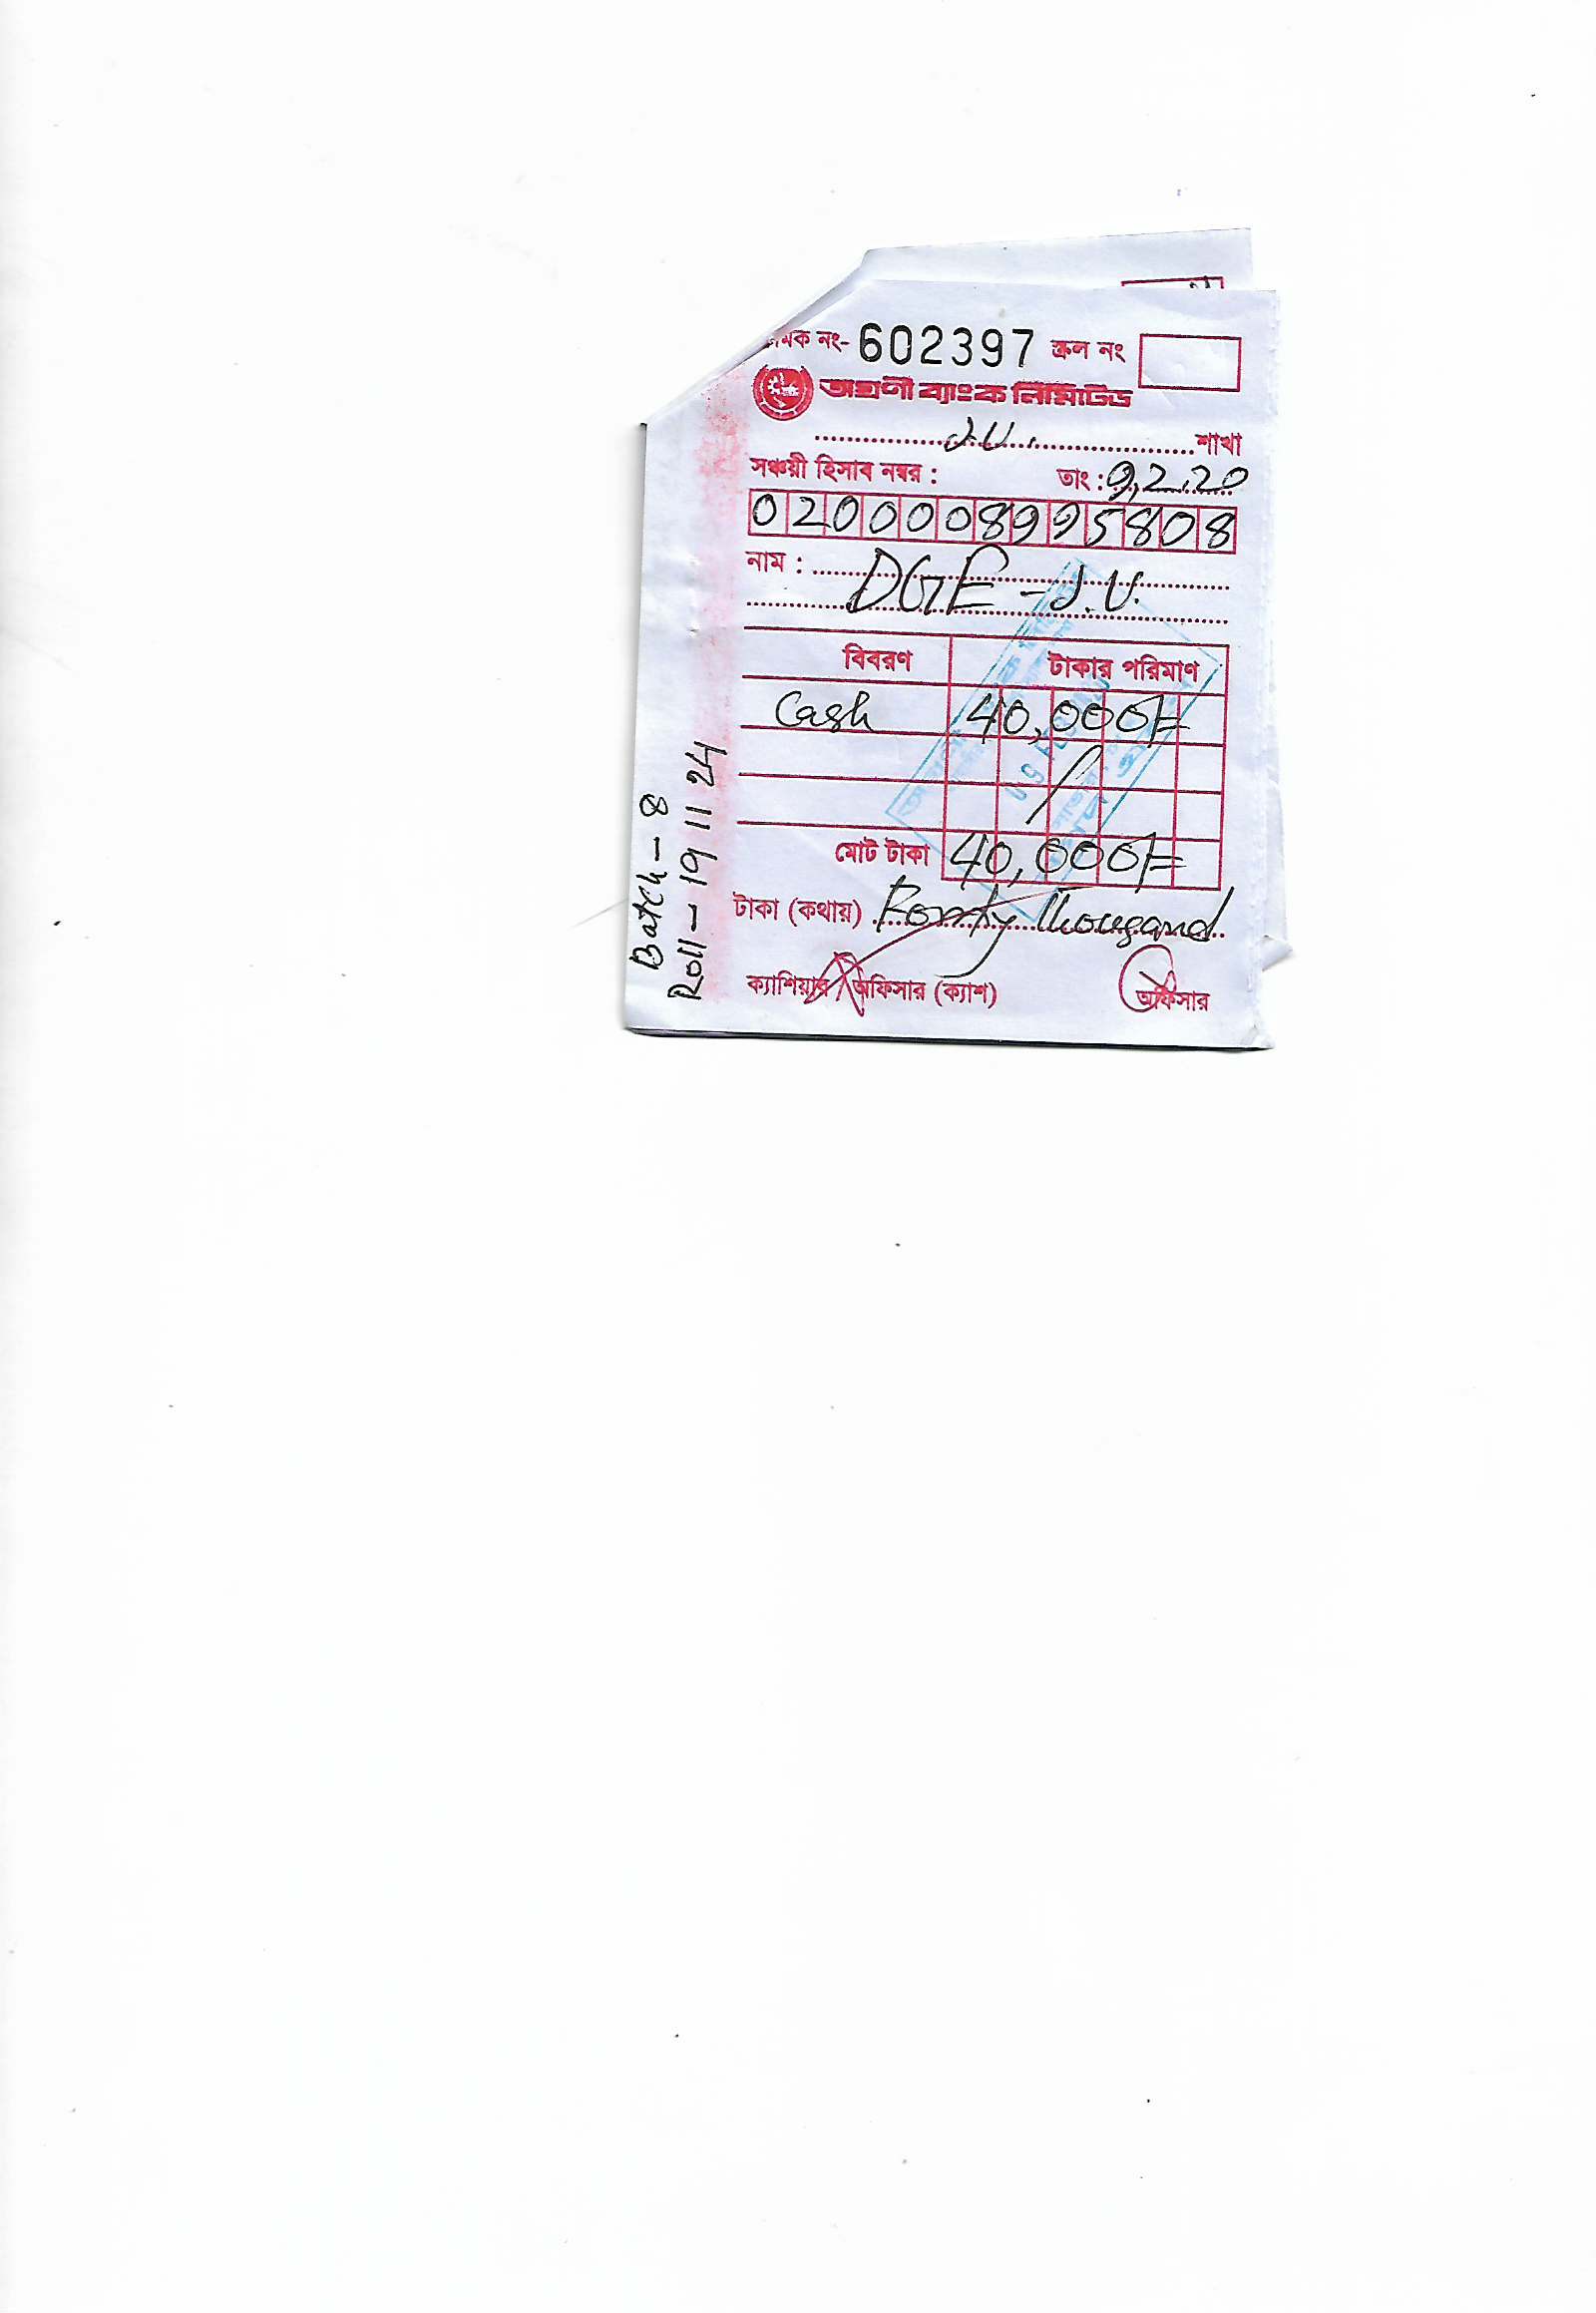 মিক নং- 602397 স্ক্রল নং
অগ্রণী ব্যাংক লিমিটেড
J.U. শাখা
সঞ্চয়ী হিসাব নম্বর : তাং : 9,2.20
0200008995808
নাম : DGE - J.U.
বিবরণ টাকার পরিমাণ
Cash 40,000/=
মোট টাকা 40,000/=
টাকা (কথায়) Fourty Thousand
ক্যাশিয়ার অফিসার (ক্যাশ) অফিসার
Batch - 8
Roll - 191124